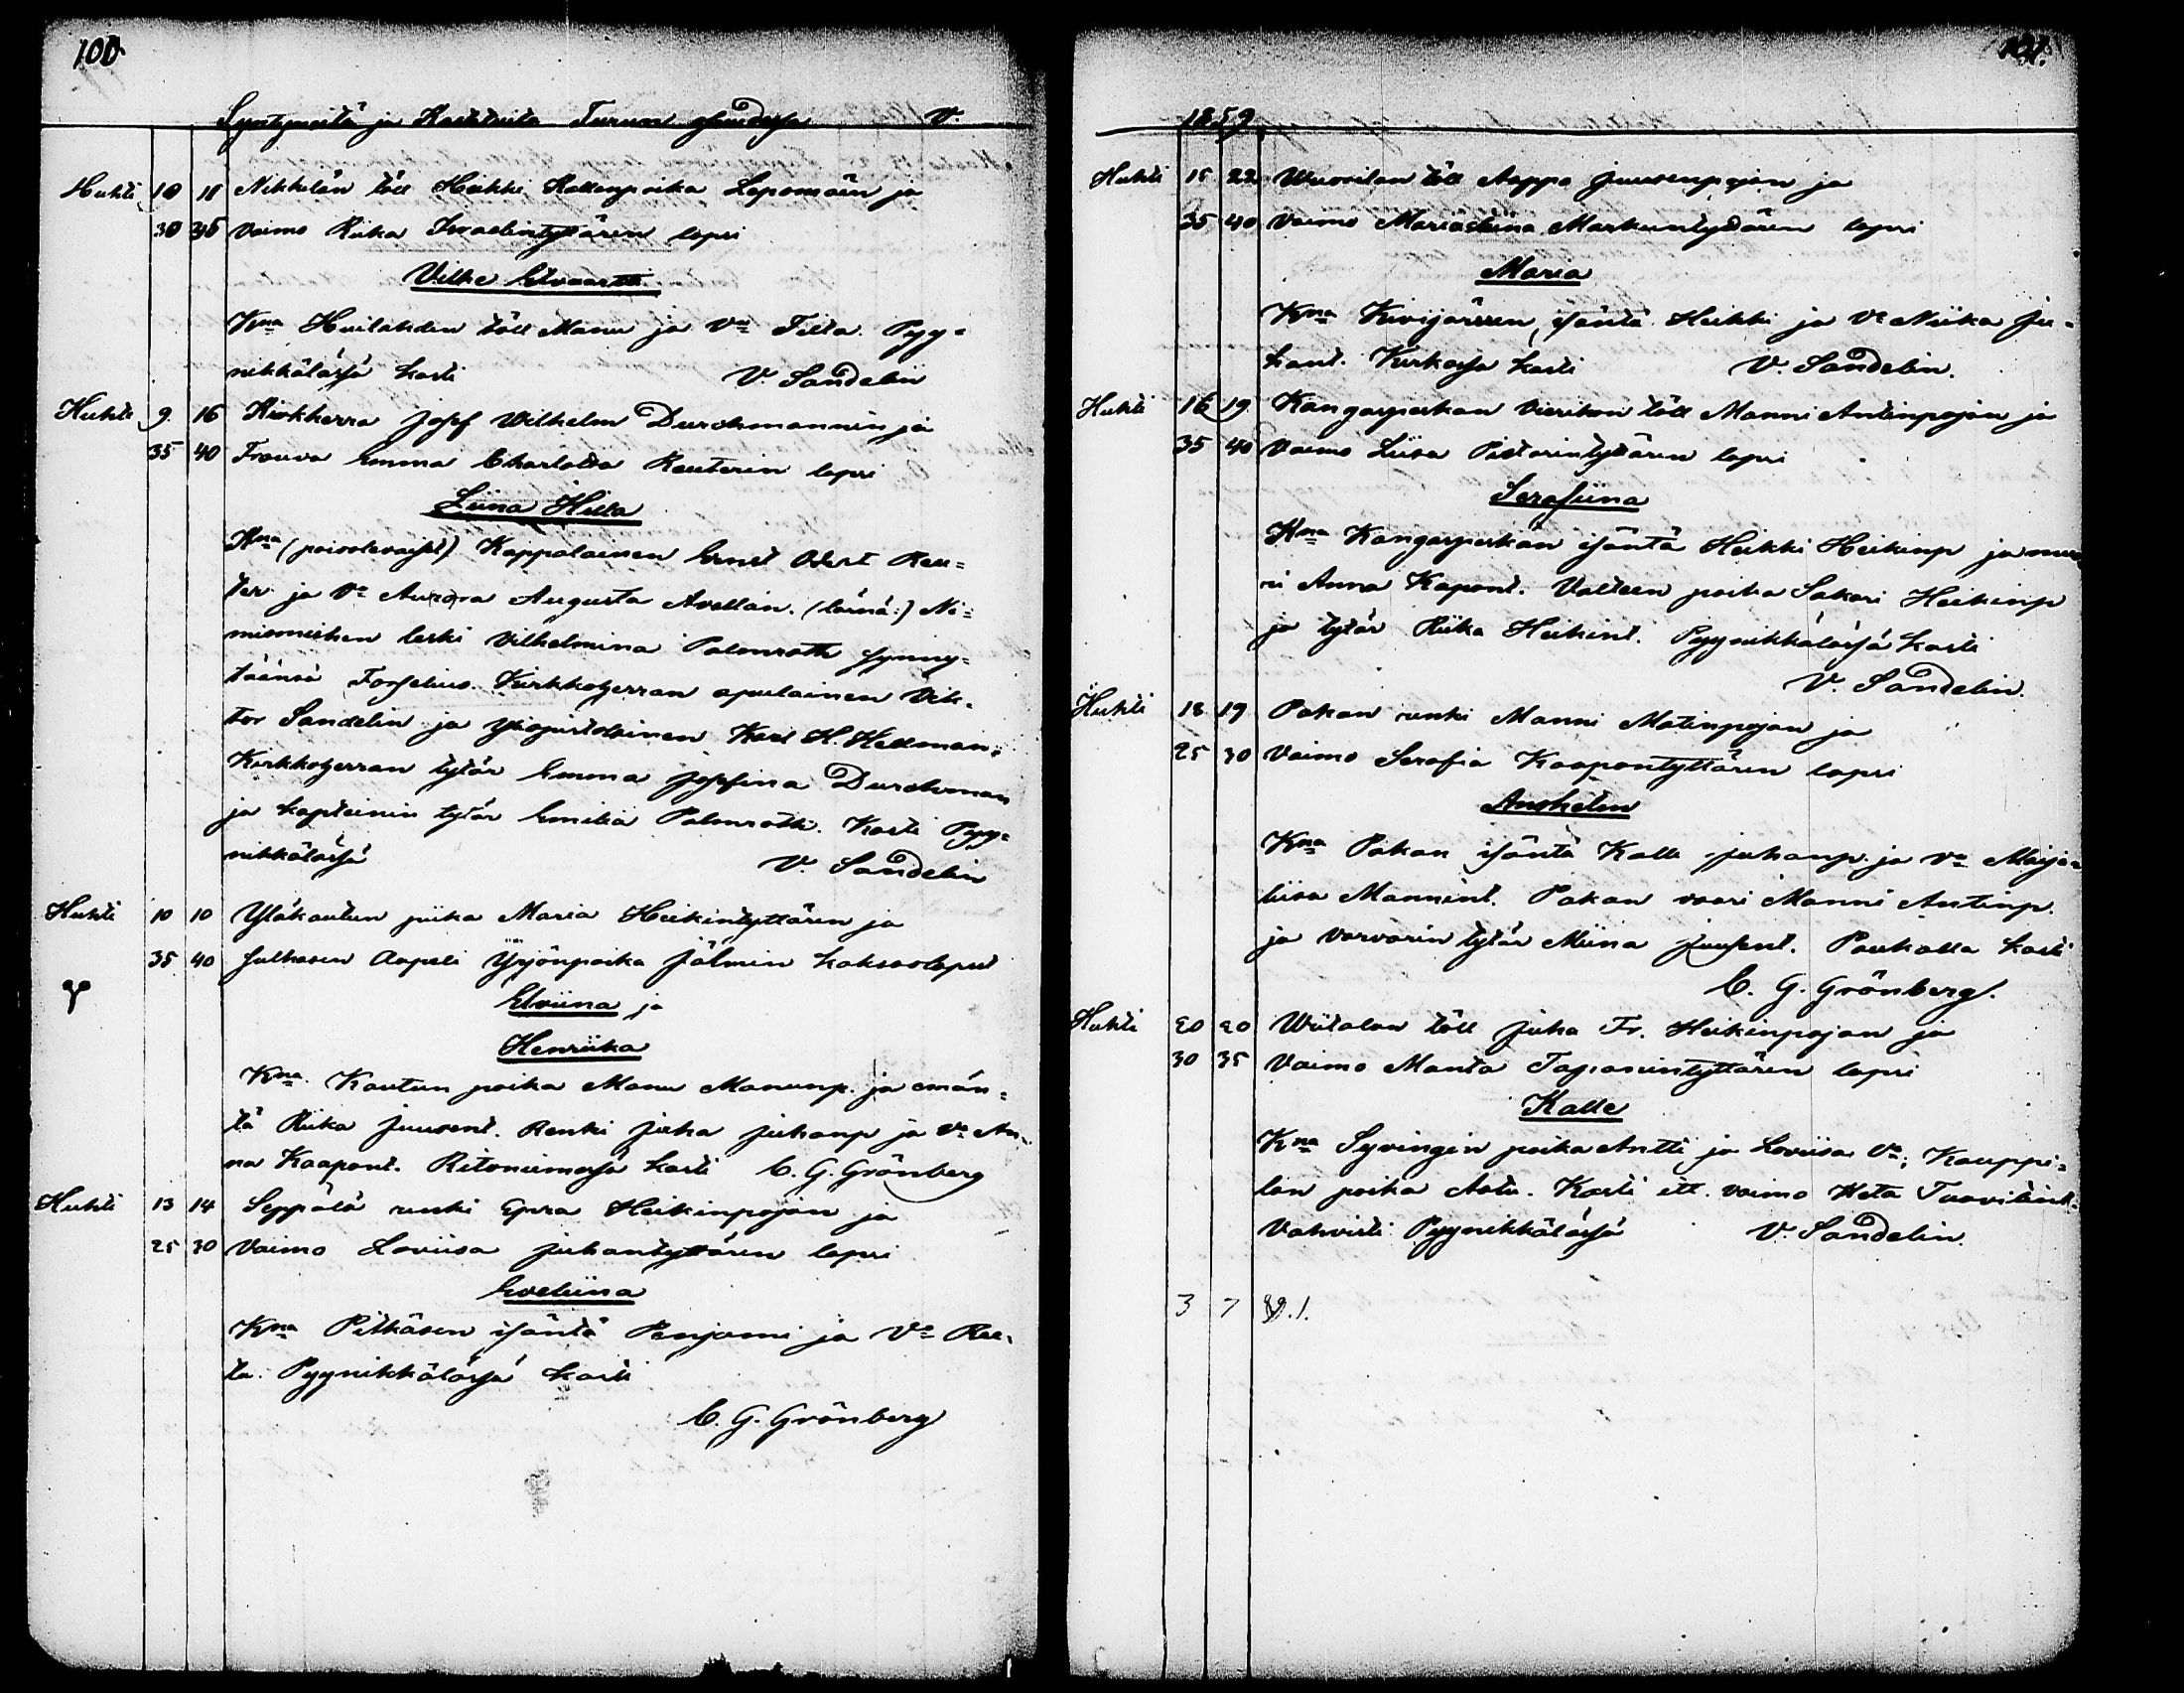 100
Syntyneitä ja Kastetuita Turun V.
Huhti 10 11 Nikkilän töll Heikki Kallenpoika Lepomäen ja
30 35 vaimo Riika Israelintyttären lapsi
Vilhe Edvaartti
Kna Huilahden töll Manu ja Vo Tilta. Pyy=
nikkälässä kasti V. Sandelin
Huhti 9. 16 Kirkherra Josef Wilhelm Durchmannin ja
35 40 Frouva Emma Charlotta Reuterin lapsi
Liina Hilla
Kna (poisolevaiset) Kappalainen Ernst Odert Reu=
ter ja Vo Aurora Augusta Avellan. (läsnä:) Ni=
mismiehen leski Vilhelmina Palmroth synny=
täänsä Forselius. Kirkkoherran apulainen Vik=
tor Sandelin ja Yliopistolainen Karl H. Hellman,
Kirkkoherran tytär Emma Josefina Durchman
ja kapteinin tytär Emilia Palmroth. Kasti Pyy=
nikkälässä V. Sandelin
Huhti 10 10 Yläkautun piika Maria Heikintyttären ja
35 40 Julkasen Aapeli Yrjönpoika Jälmin kaksoslapset
Elviina ja
Henriika
Kna. Kautun poika Manu Manunp. ja emän=
tä Riika Juusent. Renki Juha Juhanp ja Vo An=
na Kaapont. Ritoniemessä kasti C. G. Grönberg
Huhti 13 14 Seppälä renki Epra Heikinpojan ja
25 30 Vaimo Loviisa Juhantyttären lapsi
Eveliina
Kna Pitkäsen isäntä Penjami ja Vo Ree=
ta. Pyynikkälässä kasti
C. G. Grönberg
101.
1859
Huhti 15 22 Wuorilan töll Aappo Juusenpojan ja
35 40 vaimo Mariastiina Markuntyttären lapsi
Maria
Kna Kivijärven isäntä Heikki ja Vo Niika Ju=
hant. Kirkossa kasti V. Sandelin.
Huhti 16 19 Kangasperkan Vierikon töll Manni Antinpojan ja
35 40 Vaimo Liisa Pistarintyttären lapsi
Serafiina
Kna Kangasperkän isäntä Heikki Heikinp ja muo
ri Anna Kapont. Valteen poika Sakari Heikinp
ja tytär Riika Heikint. Pyynikkälässä kasti
V. Sandelin.
Huhti 18 19 Pakan renki Manni Matinpojan ja
25 30 Vaimo Serafia Kaapontyttären lapsi
Anshelm
Kna Pakan isäntä Kalle Juhanp. ja Vo Maija=
liisa Mannint. Pakan vaari Manni Antinp.
ja vorvarin tytär Miina Juusent. Paukalla kasti
C. G. Grönberg.
Huhti 20 20 Wiitalan töll Juha Fr. Heikinpojan ja
30 35 Vaimo Manta Tapanintyttären lapsi
Kalle
Kna Syvingin poika Antti ja Loviisa Vo; Kauppi=
lan poika Aatu. Kasti itt. vaimo Heta Taavitint.
Vahvisti Pyynikkälässä V. Sandelin.
3 7